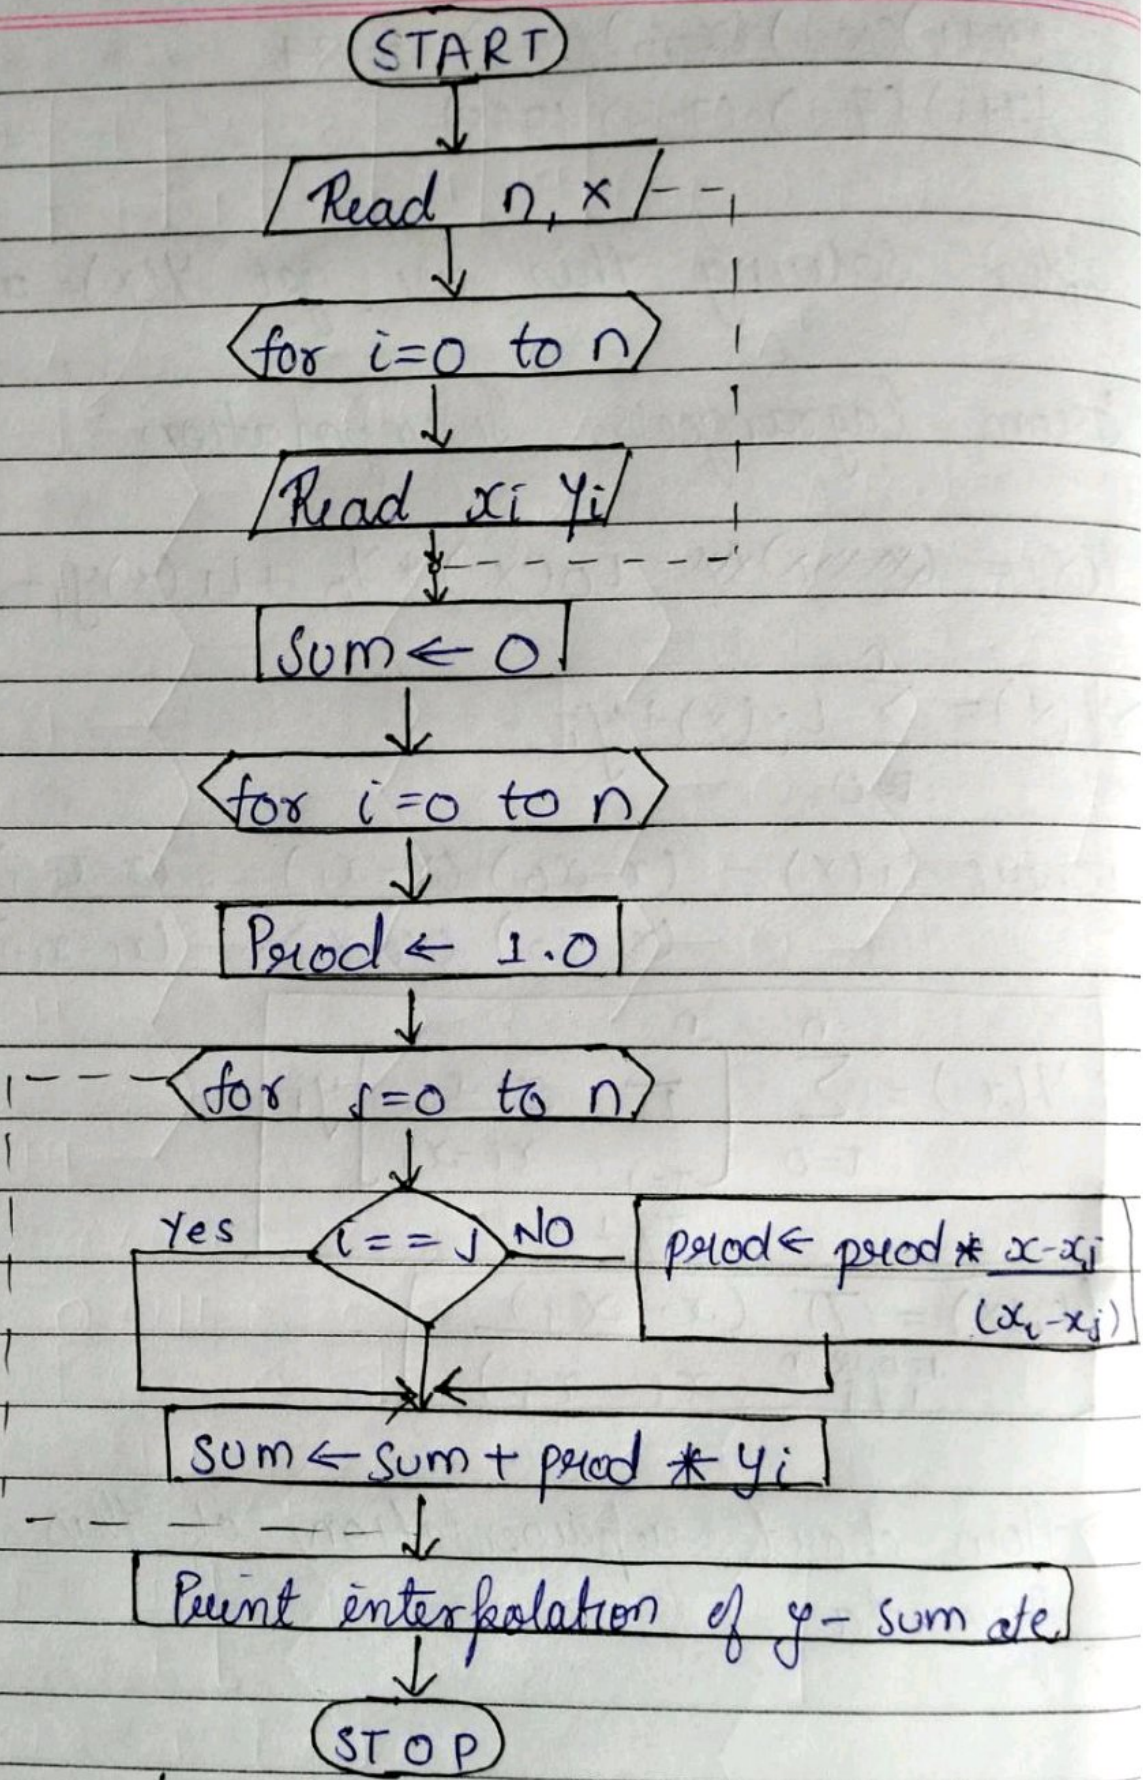 START
Read n, x
for i=0 to n
Read xi yi
Sum ← 0
for i=0 to n
Prod ← 1.0
for j=0 to n
Yes i==j NO
prod ← prod * x-xj
(xi-xj)
sum ← sum + prod * yi
Print interpolation of y - sum
STOP